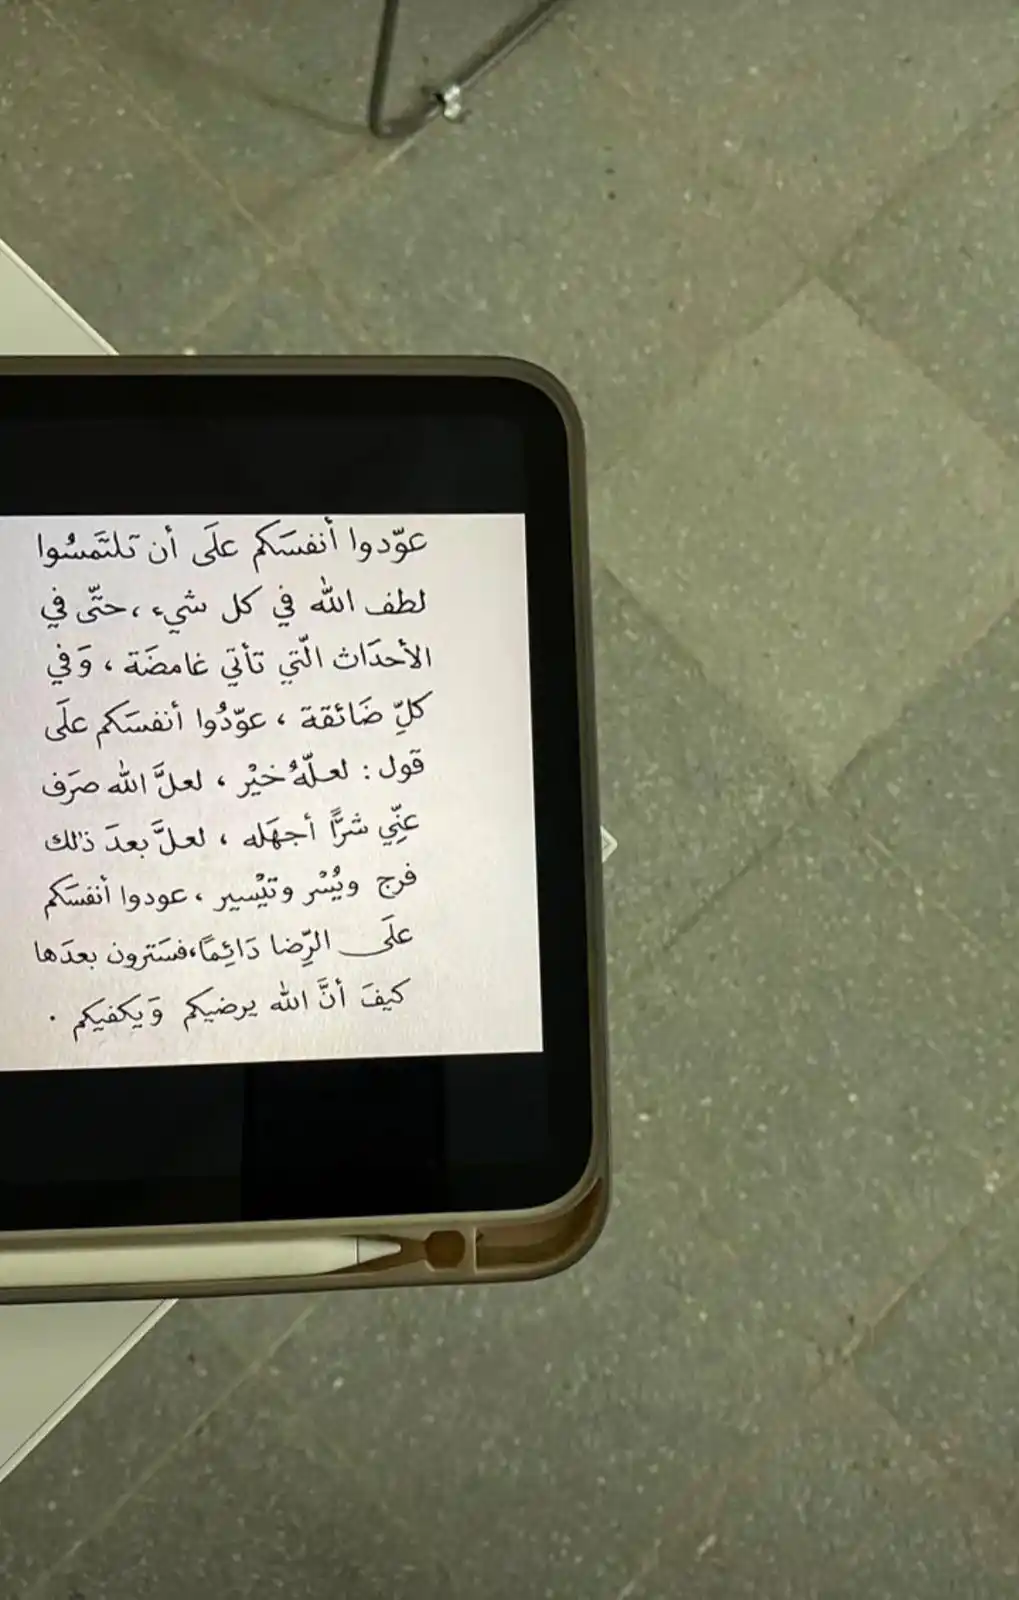 عوّدوا أنفسَكم علَى أن تَلتَمسُوا
لطف الله في كل شيء ، حتّى في
الأحدَاث الّتي تأتي غامضَة ، وَفي
كلِّ ضَائقة ، عوّدُوا أنفسَكم علَى
قول : لعلّهُ خيْر ، لعلَّ الله صرَف
عنِّي شرًّا أجهَله ، لعلَّ بعدَ ذٰلك
فرج ويُسْر وتيْسير ، عودوا أنفسَكم
علَى الرِّضا دَائِمًا،فسَترون بعدَها
كيفَ أنَّ الله يرضيكم وَيكفيكم .